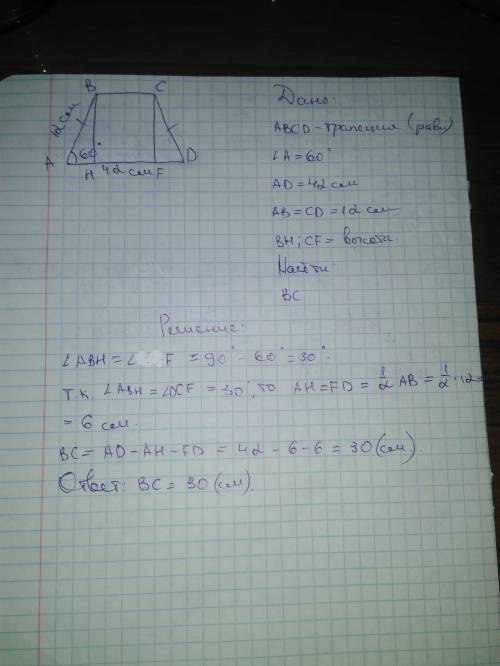 B C
12 см
A 60° D
H 42 см F
Дано:
ABCD - трапеция (равн)
∠A = 60°
AD = 42 см
AB = CD = 12 см
BH; CF = высота.
Найти:
BC
Решение:
∠ABH = ∠ F = 90° - 60° = 30°.
т.к. ∠ABH = ∠DCF = 30°, то AH = FD = 1/2 AB = 1/2 · 12 =
= 6 см.
BC = AD - AH - FD = 42 - 6 - 6 = 30 (см).
Ответ: BC = 30 (см).